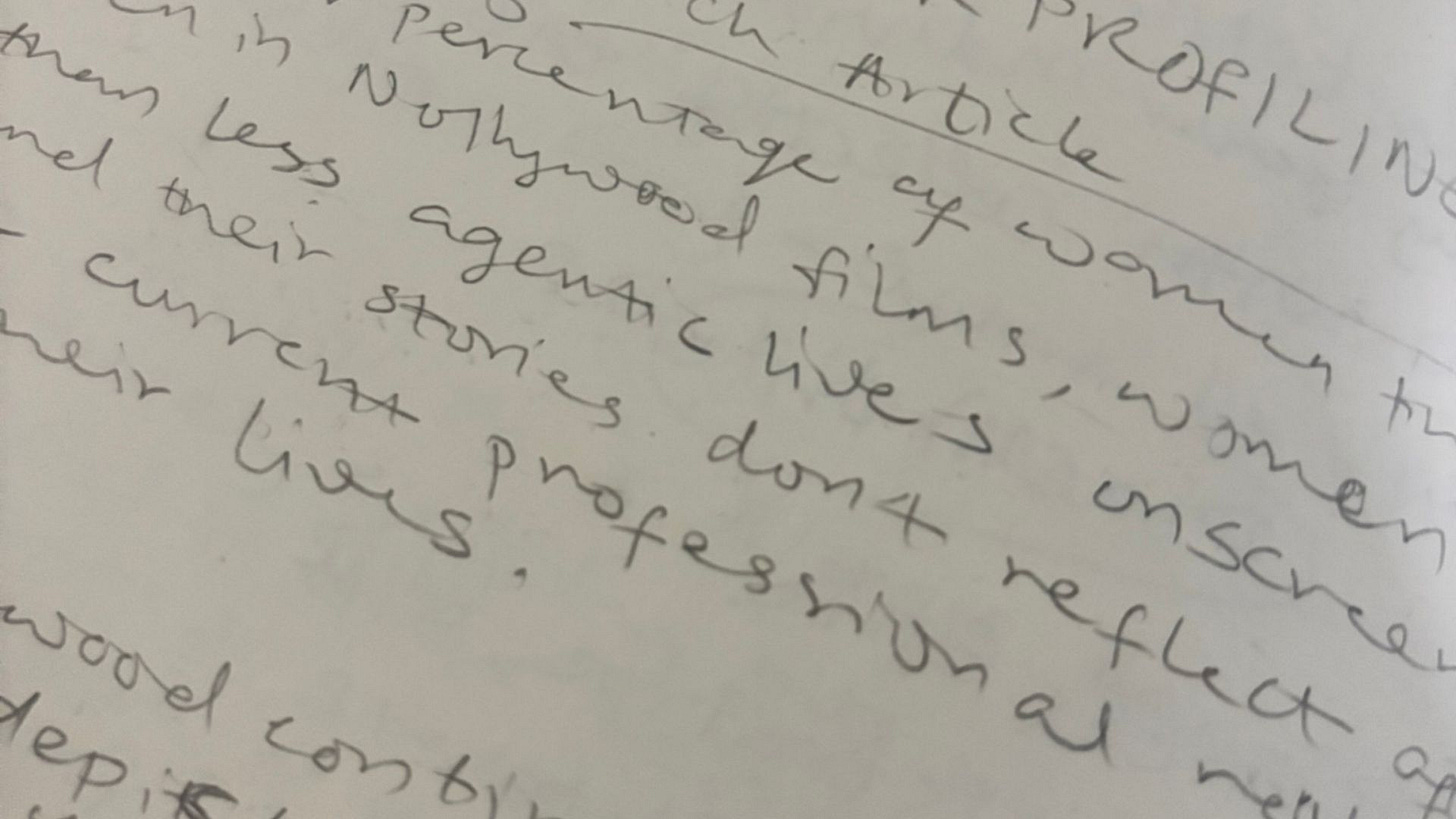 PROFILIN
ch Article
Percentage of women
in Nollywood films, women
Less agentic lives onscree
nd their stories dont reflect
current professional
heir lives.
wood contin